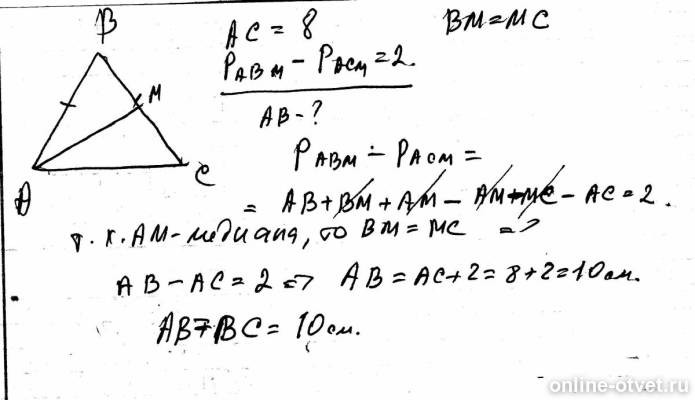 B
M
A
C
AC = 8
BM = MC
P_ABM − P_ACM = 2.
AB - ?
P_ABM − P_ACM =
= AB + BM + AM − AM + MC − AC = 2.
т. к. AM-медиана, то BM = MC =>
AB − AC = 2 => AB = AC + 2 = 8 + 2 = 10 см.
AB = BC = 10 см.
online-otvet.ru